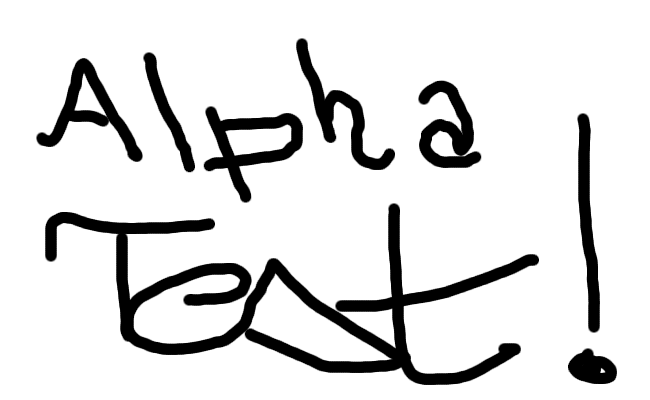 Alpha
Test!